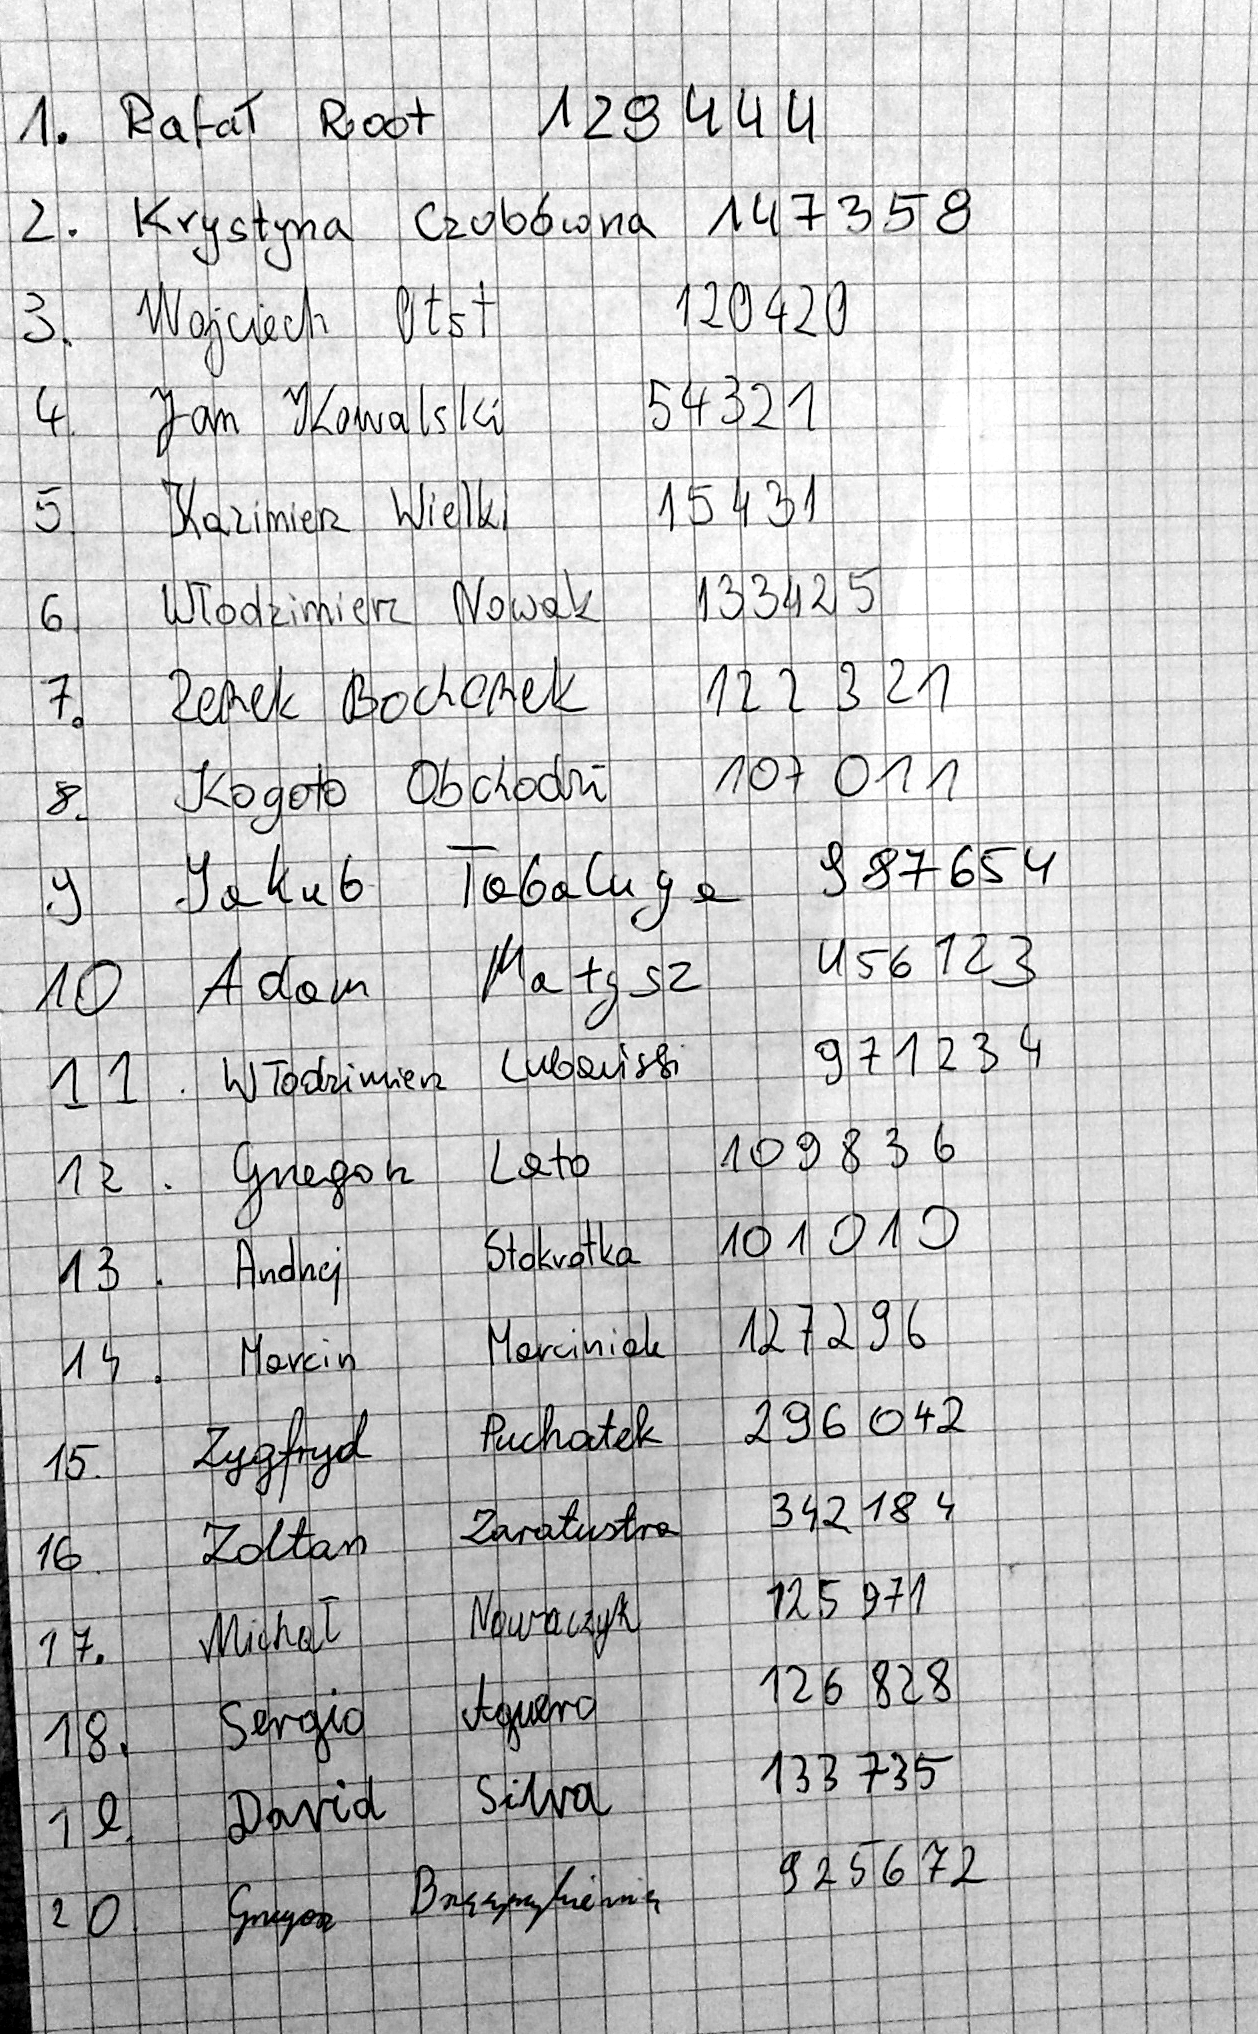 1. Rafał Root 129444
2. Krystyna Czubówna 147358
3. Wojciech Otst 120420
4. Jan Kowalski 54321
5 Kazimierz Wielki 15431
6. Włodzimierz Nowak 133425
7. Zenek Bochenek 122321
8. Kogoto Obchodzi 107011
9 Jakub Tabaluga 987654
10 Adam Małysz 456123
11. Włodzimierz 971234
12. Grzegorz Lato 109836
13. Andrzej Stokrotka 101010
14. Marcin Marciniak 127296
15. Zygfryd Puchatek 296042
16. Zoltan Zaratustra 342184
17. Michał Nowaczyk 125971
18. Sergio Aguero 126828
19. David Silva 133735
20. Grzegorz 925672